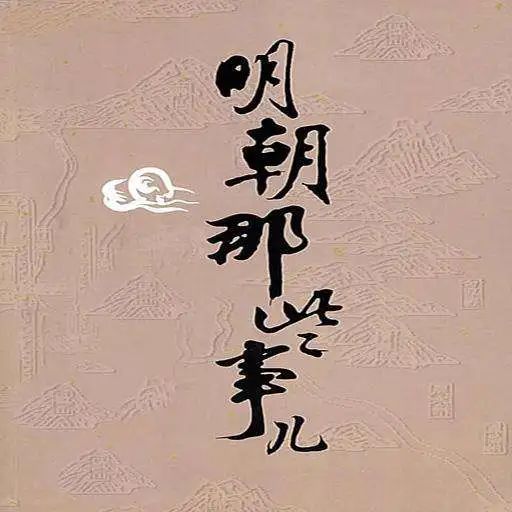 明朝那些事儿